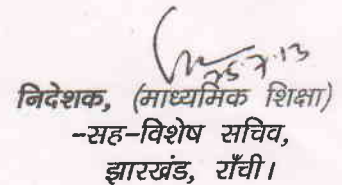 25.7.13
निदेशक, (माध्यमिक शिक्षा)
-सह-विशेष सचिव,
झारखंड, राँची।